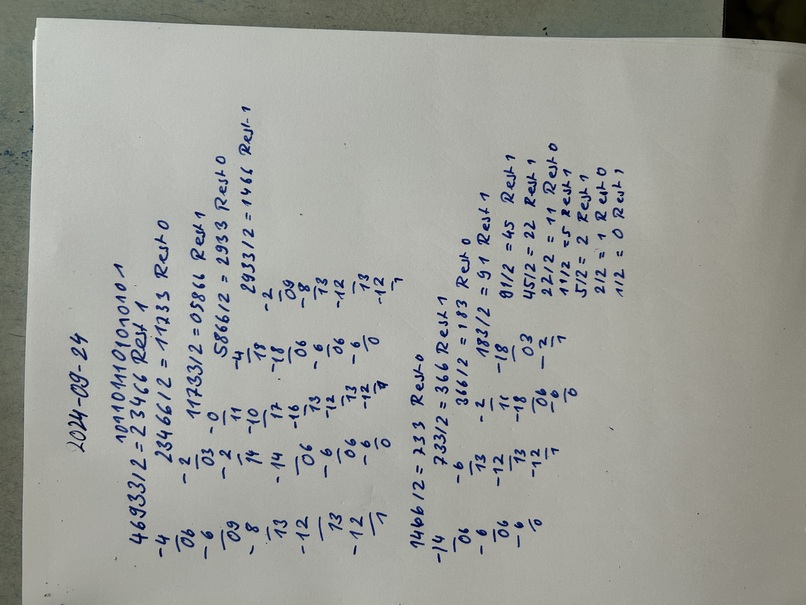 2024-09-24
1011011101010101
46933/2 = 23466 Rest 1
-4 23466/2 = 11733 Rest 0
06 -2 11733/2 = 05866 Rest 1
-6 03 -0 5866/2 = 2933 Rest 0
09 -2 11 -4 2933/2 = 1466 Rest 1
-8 14 -10 18 -2
13 -14 17 -18 09
-12 06 -16 06 -8
13 -6 13 -6 13
-12 06 -12 06 -12
1 -6 13 -6 13
0 -12 0 -12
1 1
1466/2 = 733 Rest 0
-14 733/2 = 366 Rest 1
06 -6 366/2 = 183 Rest 0
-6 13 -2 183/2 = 91 Rest 1
06 -12 11 -18 91/2 = 45 Rest 1
-6 13 -18 03 45/2 = 22 Rest 1
0 -12 06 -2 22/2 = 11 Rest 0
1 -6 1 11/2 = 5 Rest 1
0 5/2 = 2 Rest 1
2/2 = 1 Rest 0
1/2 = 0 Rest 1